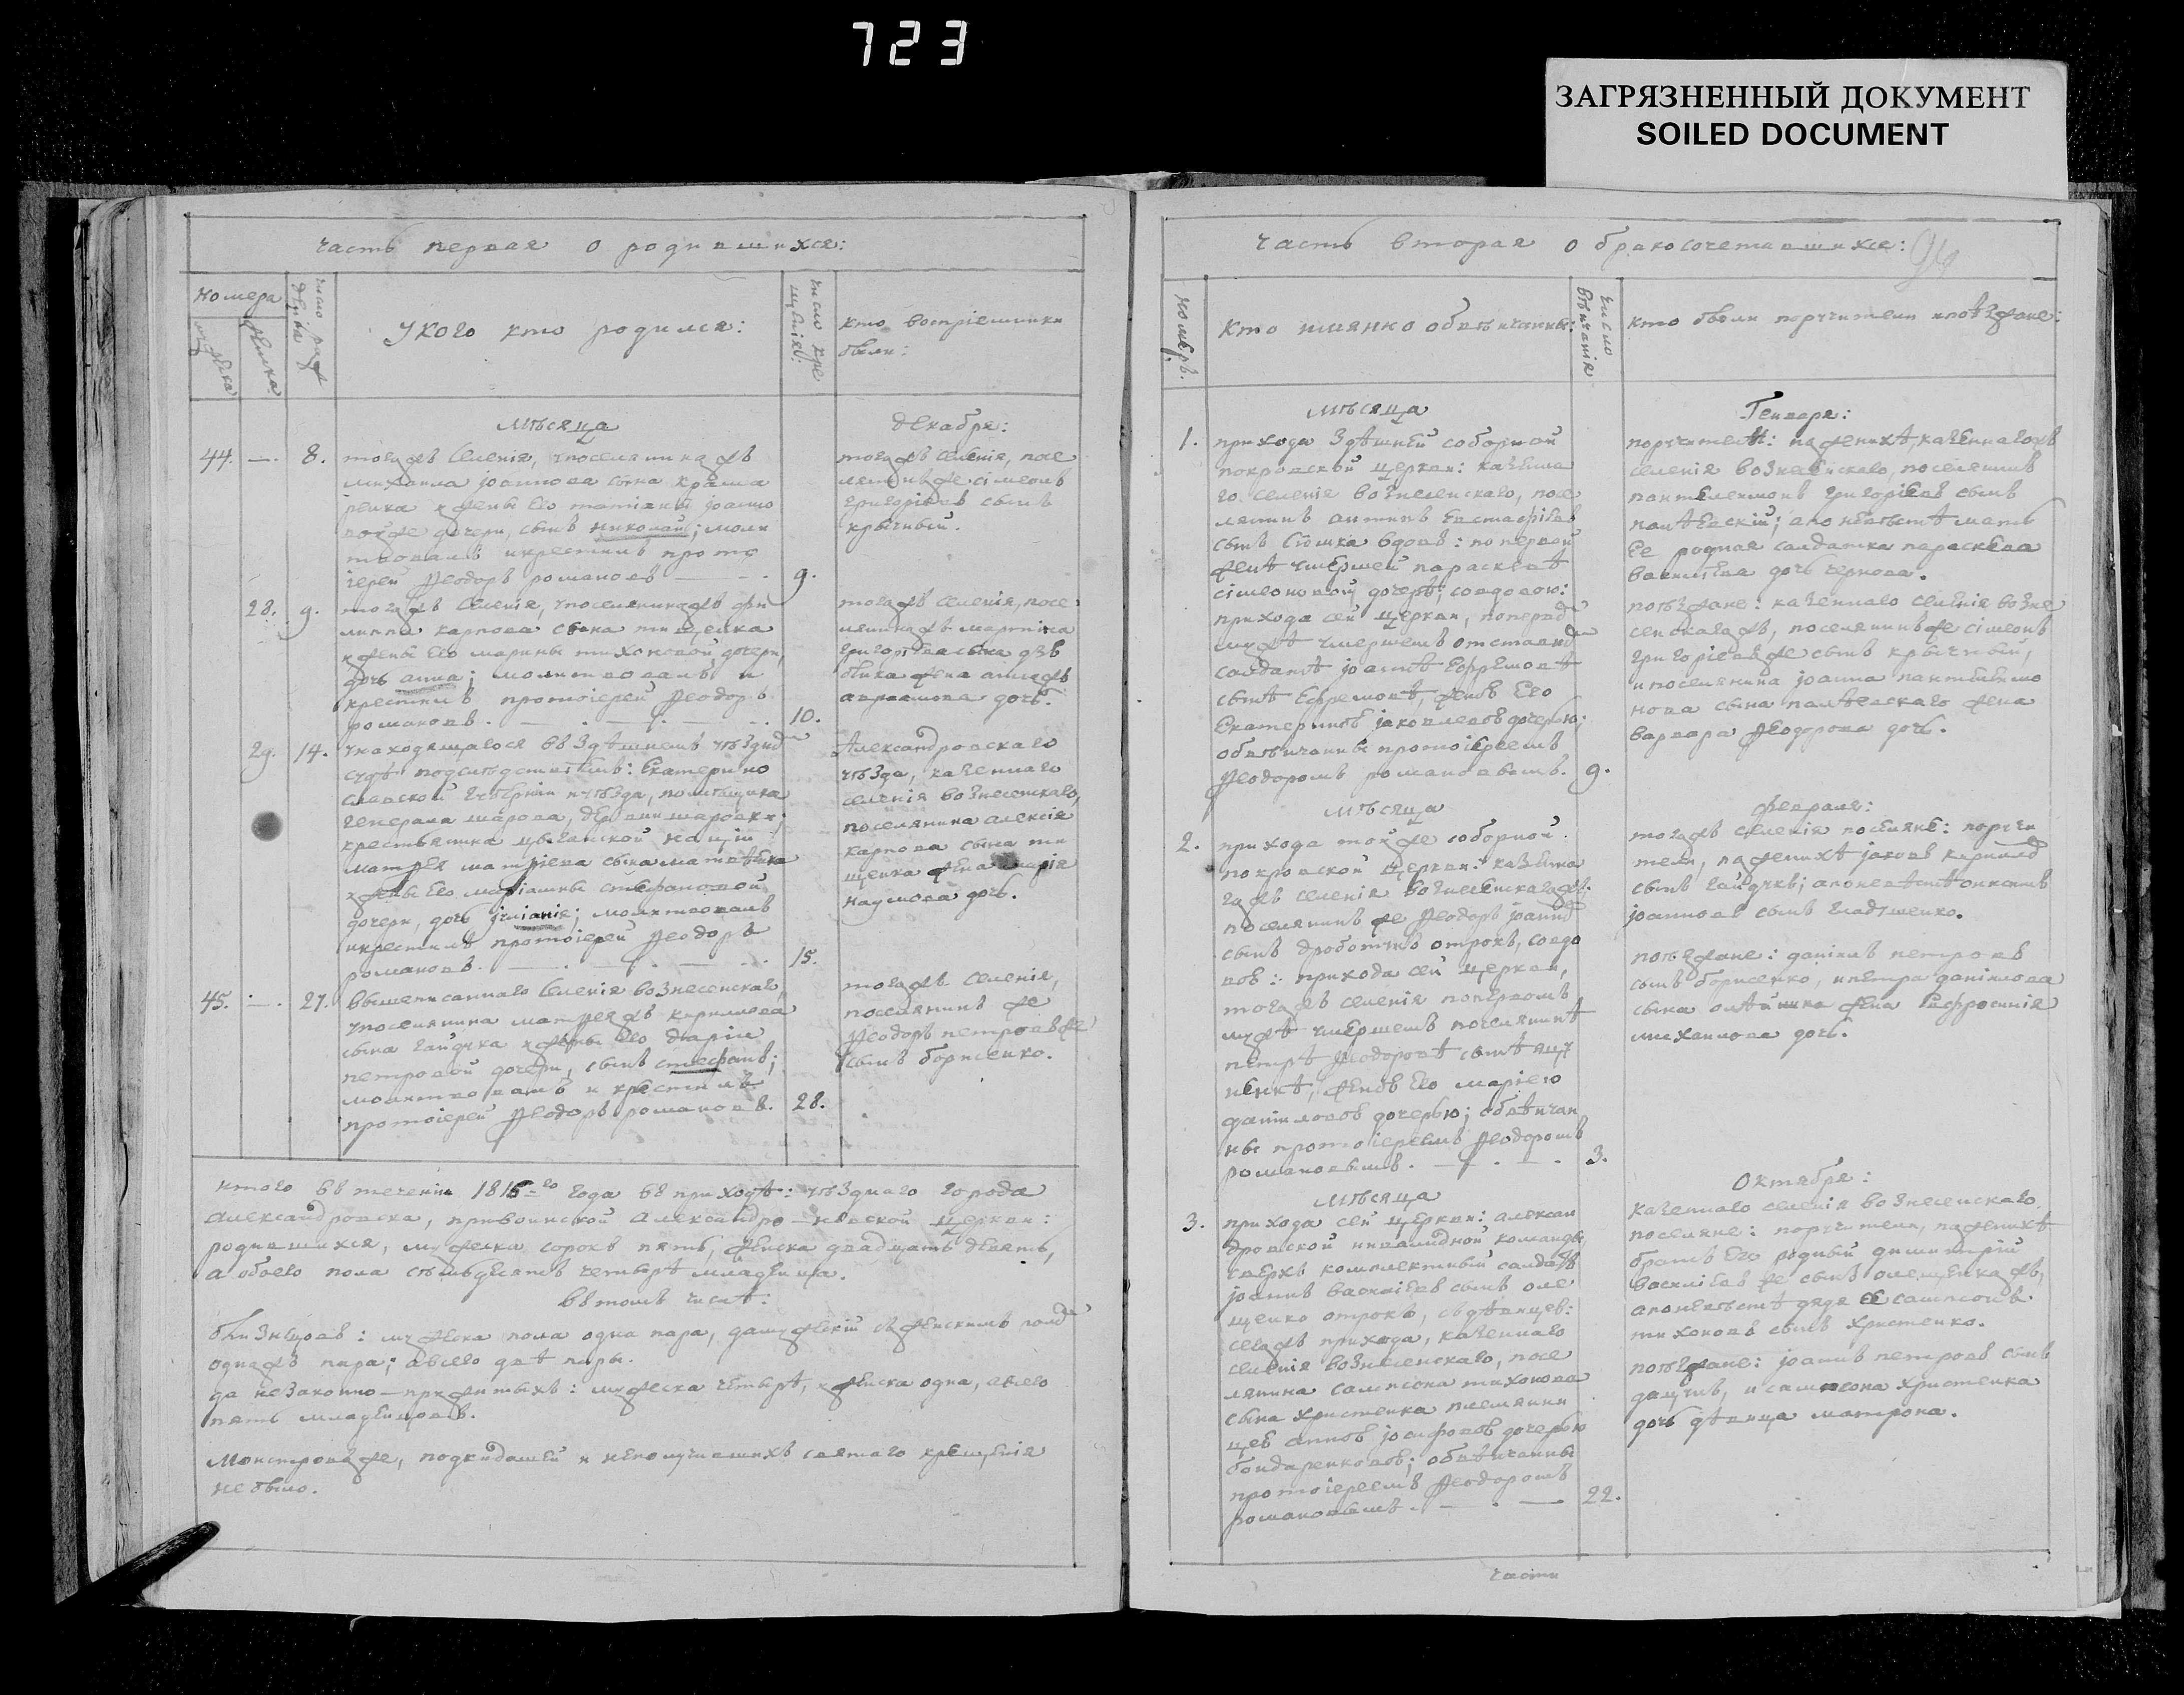 723
ЗАГРЯЗНЕННЫЙ ДОКУМЕНТ
SOILED DOCUMENT
часть первая о родившихся:
номера
У кого кто родился:
кто воспріемники
были:
мѣсяца
декабря:
44. — 8.
тогожъ селенія, у поселянина жъ
михаила іоаннова сына крама
ренка и жены его татіаны іоанно
вой же дочери, сынъ николай; моли
твовалъ и крестилъ прото
іерей Ѳеодоръ романовъ
9.
тогожъ селенія, посе
лянинъ же сімеонъ
григоріевъ сынъ
крычный.
28. 9.
тогожъ селенія, у поселянина жъ фи
липпа карпова сына тищенка
и жены его марины тихоновой дочери,
дочь анна; молитвовалъ и
крестилъ протоіерей Ѳеодоръ
романовъ.
10.
тогожъ селенія, посе
лянина жъ мартина
григоріева сына дзю
бенка жена анна жъ
авраамова дочь.
29. 14.
у находящагося въ здѣшнемъ уѣздн
судѣ подъ слѣдствіемъ: Екатерино
славской губерніи и уѣзда, помѣщика
генерала шарова, деревни шаровки;
крестьянина цыганской націи
матѳея матѳіева сына матвѣенка
и жены его маріанны стефановой
дочери, дочь іуліанія; молитвовалъ
и крестилъ протоіерей Ѳеодоръ
романовъ.
15.
Александровскаго
уѣзда, казеннаго
селенія вознесенскаго,
поселянина алексія
карпова сына ти
щенка жена марія
наумова дочь.
45. — 27.
вышеписаннаго селенія вознесенскаго,
у поселянина матѳея жъ кирилова
сына гайдука и жены его даріи
петровой дочери, сынъ стефанъ;
молитвовалъ и крестилъ
протоіерей Ѳеодоръ романовъ.
28.
тогожъ селенія,
поселянинъ же
Ѳеодоръ петровъ же
сынъ борисенко.
итого въ теченіи 1816го года въ приходѣ: уѣзднаго города
александровска, при воинской александро-невской церкви:
родившихся, мужеска сорокъ пять, женска двадцать девять,
а обоего пола семьдесятъ четыре младенца.
въ томъ числѣ:
близнецовъ: мужеска пола одна пара, да мужескій съ женскимъ
одна жъ пара; а всего двѣ пары.
да незаконно-прижитыхъ: мужеска четыре, женска одна, а всего
пять младенцовъ.
Монстровъ же, подкидышей и неполучившихъ святаго крещенія
не было.
часть вторая о бракосочетавшихся:
94
номеръ.
кто имянно обвѣнчаны:
число
вѣнчанія
кто были поручители и поѣзжане:
мѣсяца
Генваря:
1.
прихода здѣшней соборной
покровской церкви: казенна
го селенія вознесенскаго, посе
лянинъ антипъ евстафіевъ
сынъ сюшка вдовъ: по первой
женѣ умершей параскевѣ
сімеоновой дочерѣ; со вдовою:
прихода сей церкви, по перво
мужѣ умершемъ отставно
солдатѣ іоаннѣ ефремовѣ
сынѣ Ефремовѣ, женѣ его
Екатериною іаковлевою дочерью;
обвѣнчаны протоіереемъ
Ѳеодоромъ романовымъ.
9.
поручители: по женихѣ, казеннаго жъ
селенія вознесенскаго, поселянинъ
пантелеимонъ григоріевъ сынъ
палѣевскій; а по невѣстѣ мать
ее родная солдатка параскева
василіева дочь чернова.
поѣзжане: казеннаго селенія возне
сенскаго жъ, поселянинъ же сімеонъ
григоріевъ же сынъ крычный,
и поселянина іоанна пантелеимо
нова сына палѣевскаго жена
варвара Ѳеодорова дочь.
мѣсяца
февраля:
2.
прихода той же соборной
покровской церкви: казенна
го жъ селенія вознесенскаго жъ:
поселянинъ же Ѳеодоръ іоанно
сынъ дроботунъ отрокъ, со вдо
вою: прихода сей церкви,
тогожъ селенія по первомъ
мужѣ умершемъ поселянинѣ
петрѣ Ѳеодоровѣ сынѣ яцу
ненкѣ, женою его маріею
даниловою дочерью; обвѣнча
ны протоіереемъ Ѳеодоромъ
романовымъ.
3.
тогожъ селенія поселяне: поручи
тели, по женихѣ іаковъ кирилов
сынъ гайдукъ; а по невѣстѣ онисимъ
іоанновъ сынъ гладушенко.
поѣзжане: даніилъ петровъ
сынъ борисенко, и петра даніилова
сына олѣйника жена Евфросинія
михаилова дочь.
мѣсяца
Октября:
3.
прихода сей церкви: алексан
дровской инвалидной команды,
сверхъ комплектный солдатъ
іоаннъ василіевъ сынъ оле
щенко отрокъ, съ дѣвицею:
сего жъ прихода, казеннаго
селенія вознесенскаго, посе
лянина сампсона тихонова
сына христенка племянни
цею анною іосифовою дочерью
бондаренковою; обвѣнчаны
протоіереемъ Ѳеодоромъ
романовымъ.
22.
казеннаго селенія вознесенскаго
поселяне: поручители, по женихѣ
братъ его родный димитрій
василіевъ же сынъ олещенко жъ,
а по невѣстѣ дядя ее сампсонъ
тихоновъ сынъ христенко.
поѣзжане: іоаннъ петровъ сынъ
дацунъ, и сампсона христенка
дочь дѣвица матрона.
части